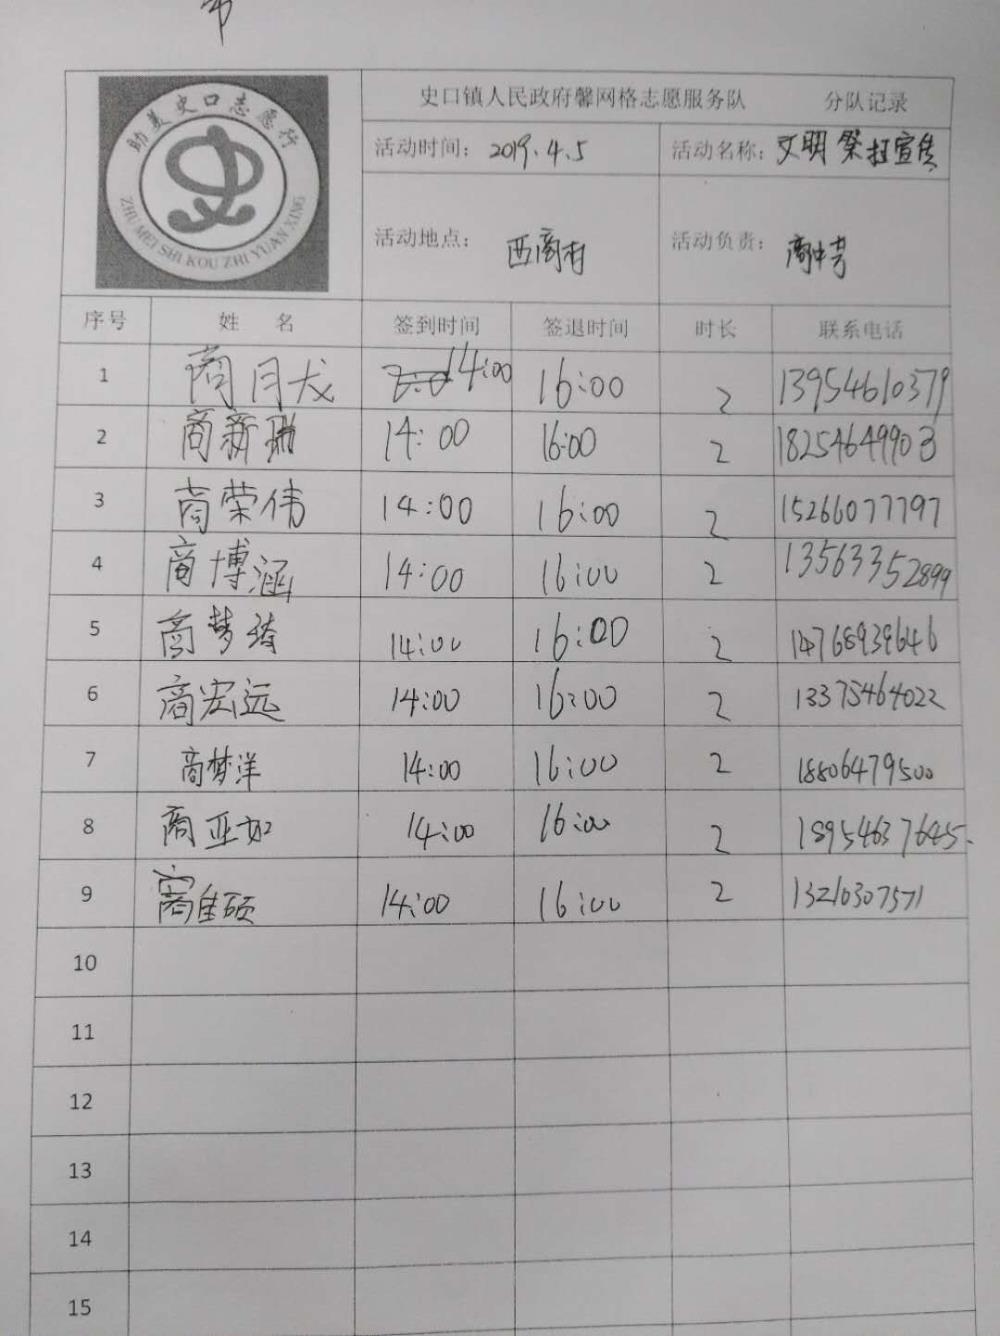 助美史口志愿行
ZHU MEI SHI KOU ZHI YUAN XING
史口镇人民政府馨网格志愿服务队 分队记录
活动时间: 2019.4.5 活动名称: 文明祭扫宣传
活动地点: 西商村 活动负责: 商中芳
序号 姓 名 签到时间 签退时间 时长 联系电话
1 商月龙 14:00 16:00 2 13954610379
2 商新瑞 14:00 16:00 2 18254649903
3 商荣伟 14:00 16:00 2 15266077797
4 商博涵 14:00 16:00 2 13563352899
5 商梦琦 14:00 16:00 2 14768939646
6 商宏远 14:00 16:00 2 13375464022
7 商梦洋 14:00 16:00 2 18806479500
8 商亚如 14:00 16:00 2 18954637645
9 商佳硕 14:00 16:00 2 13210307571
10
11
12
13
14
15